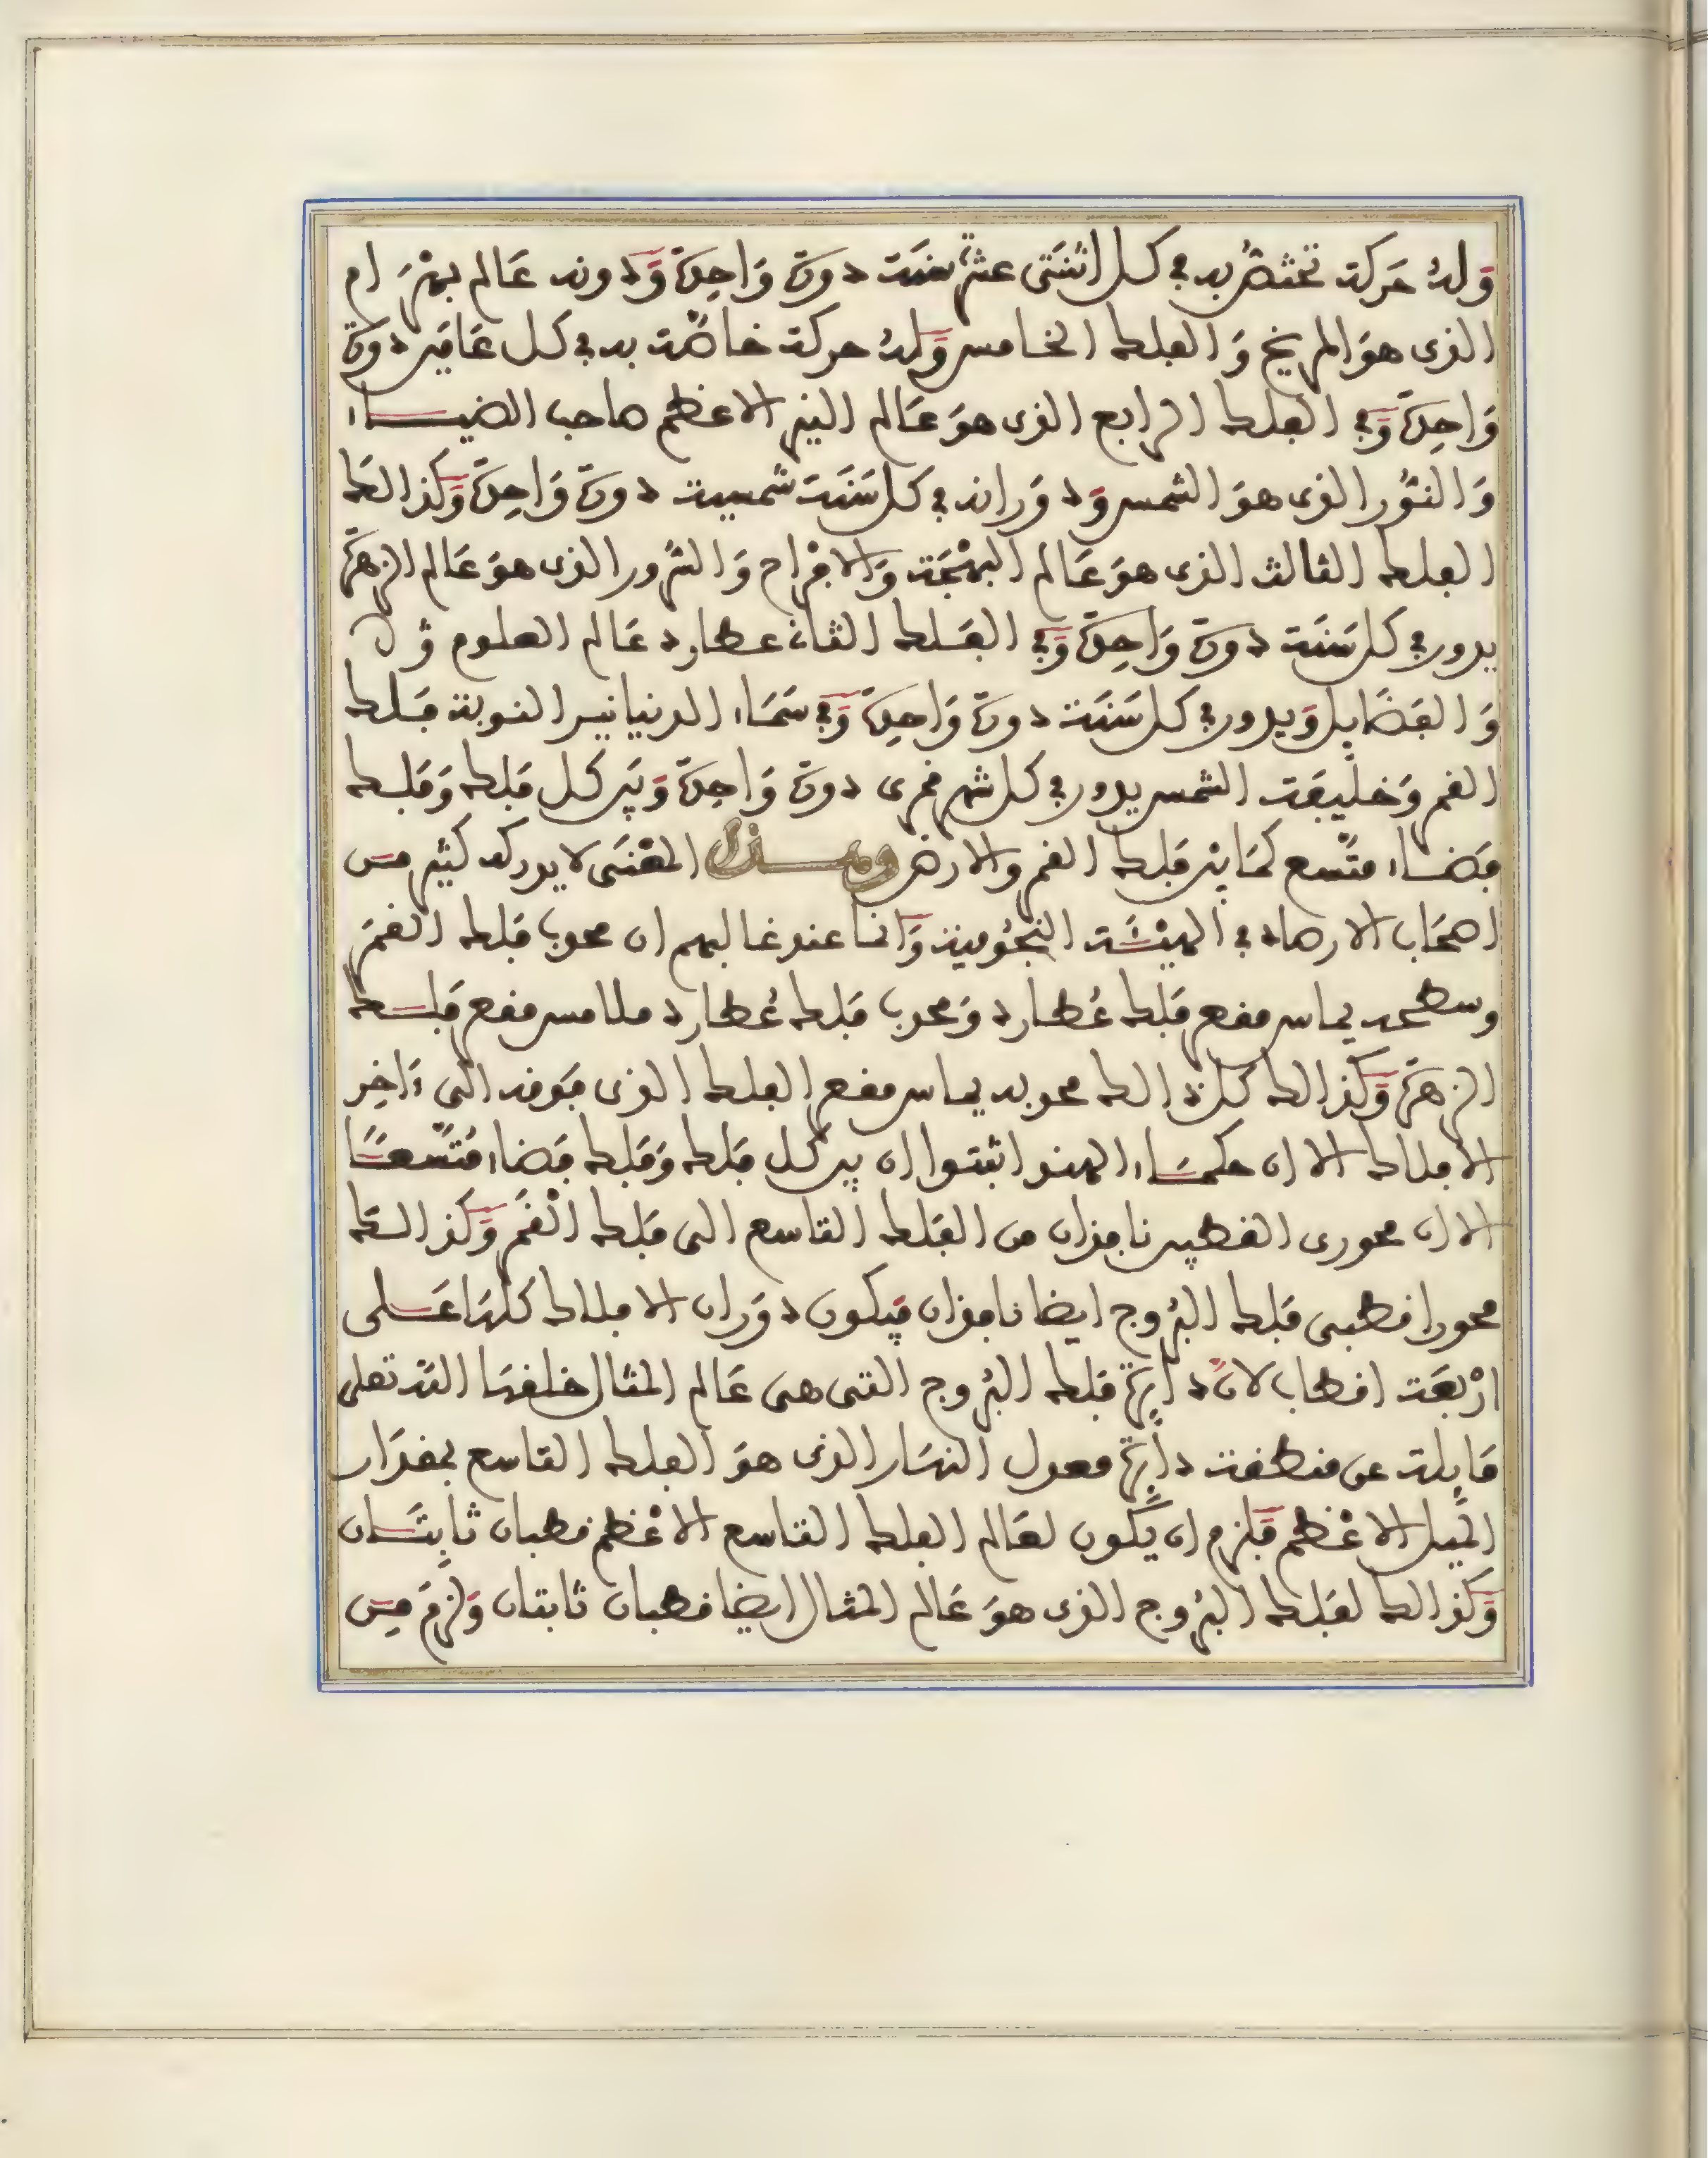 وَلهُ حَركة تختصُّ به في كل اثنتى عشرة سَنَة دورة وَاحِدة وَدونه عَالم بهْرَام
الذى هوَ المريخ وَالفلك الخامس وَلهُ حركة خاصّة به في كل عَامَين دورة
وَاحِدة وَفي الفلك الرابع الذى هوَ عَالم النير الاعظم صاحب الضيـاء
وَالنُّور الذى هوَ الشمس وَدوَرانه في كل سَنَة شمسية دورة وَاحِدة وَكذالكَ
الفلك الثالث الذى هوَ عَالم البهْجَة وَالافْراح وَالسُّرور الذى هوَ عَالم الزهَرة
يدور في كل سَنَة دورة وَاحِدة وَفي الفَلك الثانے عطارد عَالم العلوم
وَالفَضَايِل وَيدور في كل سَنَة دورة وَاحِدة وَفي سَمَاء الدنيا نير النوبة فَلك
القمر وَخليفَة الشمس يدور في كل شهر قمرى دورة وَاحِدة وَبَين كل فَلك وَفَلك
فَضاء متَّسع كمَا بيْن فَلك القمر والارض وهذا المعْنَى لا يدركه كثير مِن
اصحَاب الارصاد في الهيْئَة النجُومية وَانما عند غالبهم ان محدب فَلك القمَر
وسطحه يماس مقعر فَلك عُطارد وَمحدب فَلك عُطارد ملامس مقعر فَلك
الزهَرة وَكذالك كل ذالك محدبه يماس مقعر الفلك الذى فَوقه الى ءَاخِر
الافلاك الا ان حكمَاء الهند اثبتوا ان بين كل فَلك وَفَلك فَضاء مُتَّسعًا
الا ان محورى القطبين نافذان من الفَلك التاسع الى فَلك القَمر وَكذالكَ
محورا قطبى فَلك البرُوج ايضا نافذان فَيكون دوَران الافلاك كلهَا عَـلى
ارْبعَة اقطاب لانَّ دايرة فلك البرُوج التى هى عَالم المثال خلقهَا الله تعلى
مَايلة عن منطقة دايرة معدل النهَار الذى هوَ الفلك التاسع بمقدَار
الميل الاعْظم فَلزم ان يكون لعَالم الفلك التاسع الاعْظم قطبان ثابتَـان
وَكذالك لفَلك البرُوج الذى هوَ عَالم المثال ايضا قطبان ثابتان وَلزمَ مِن